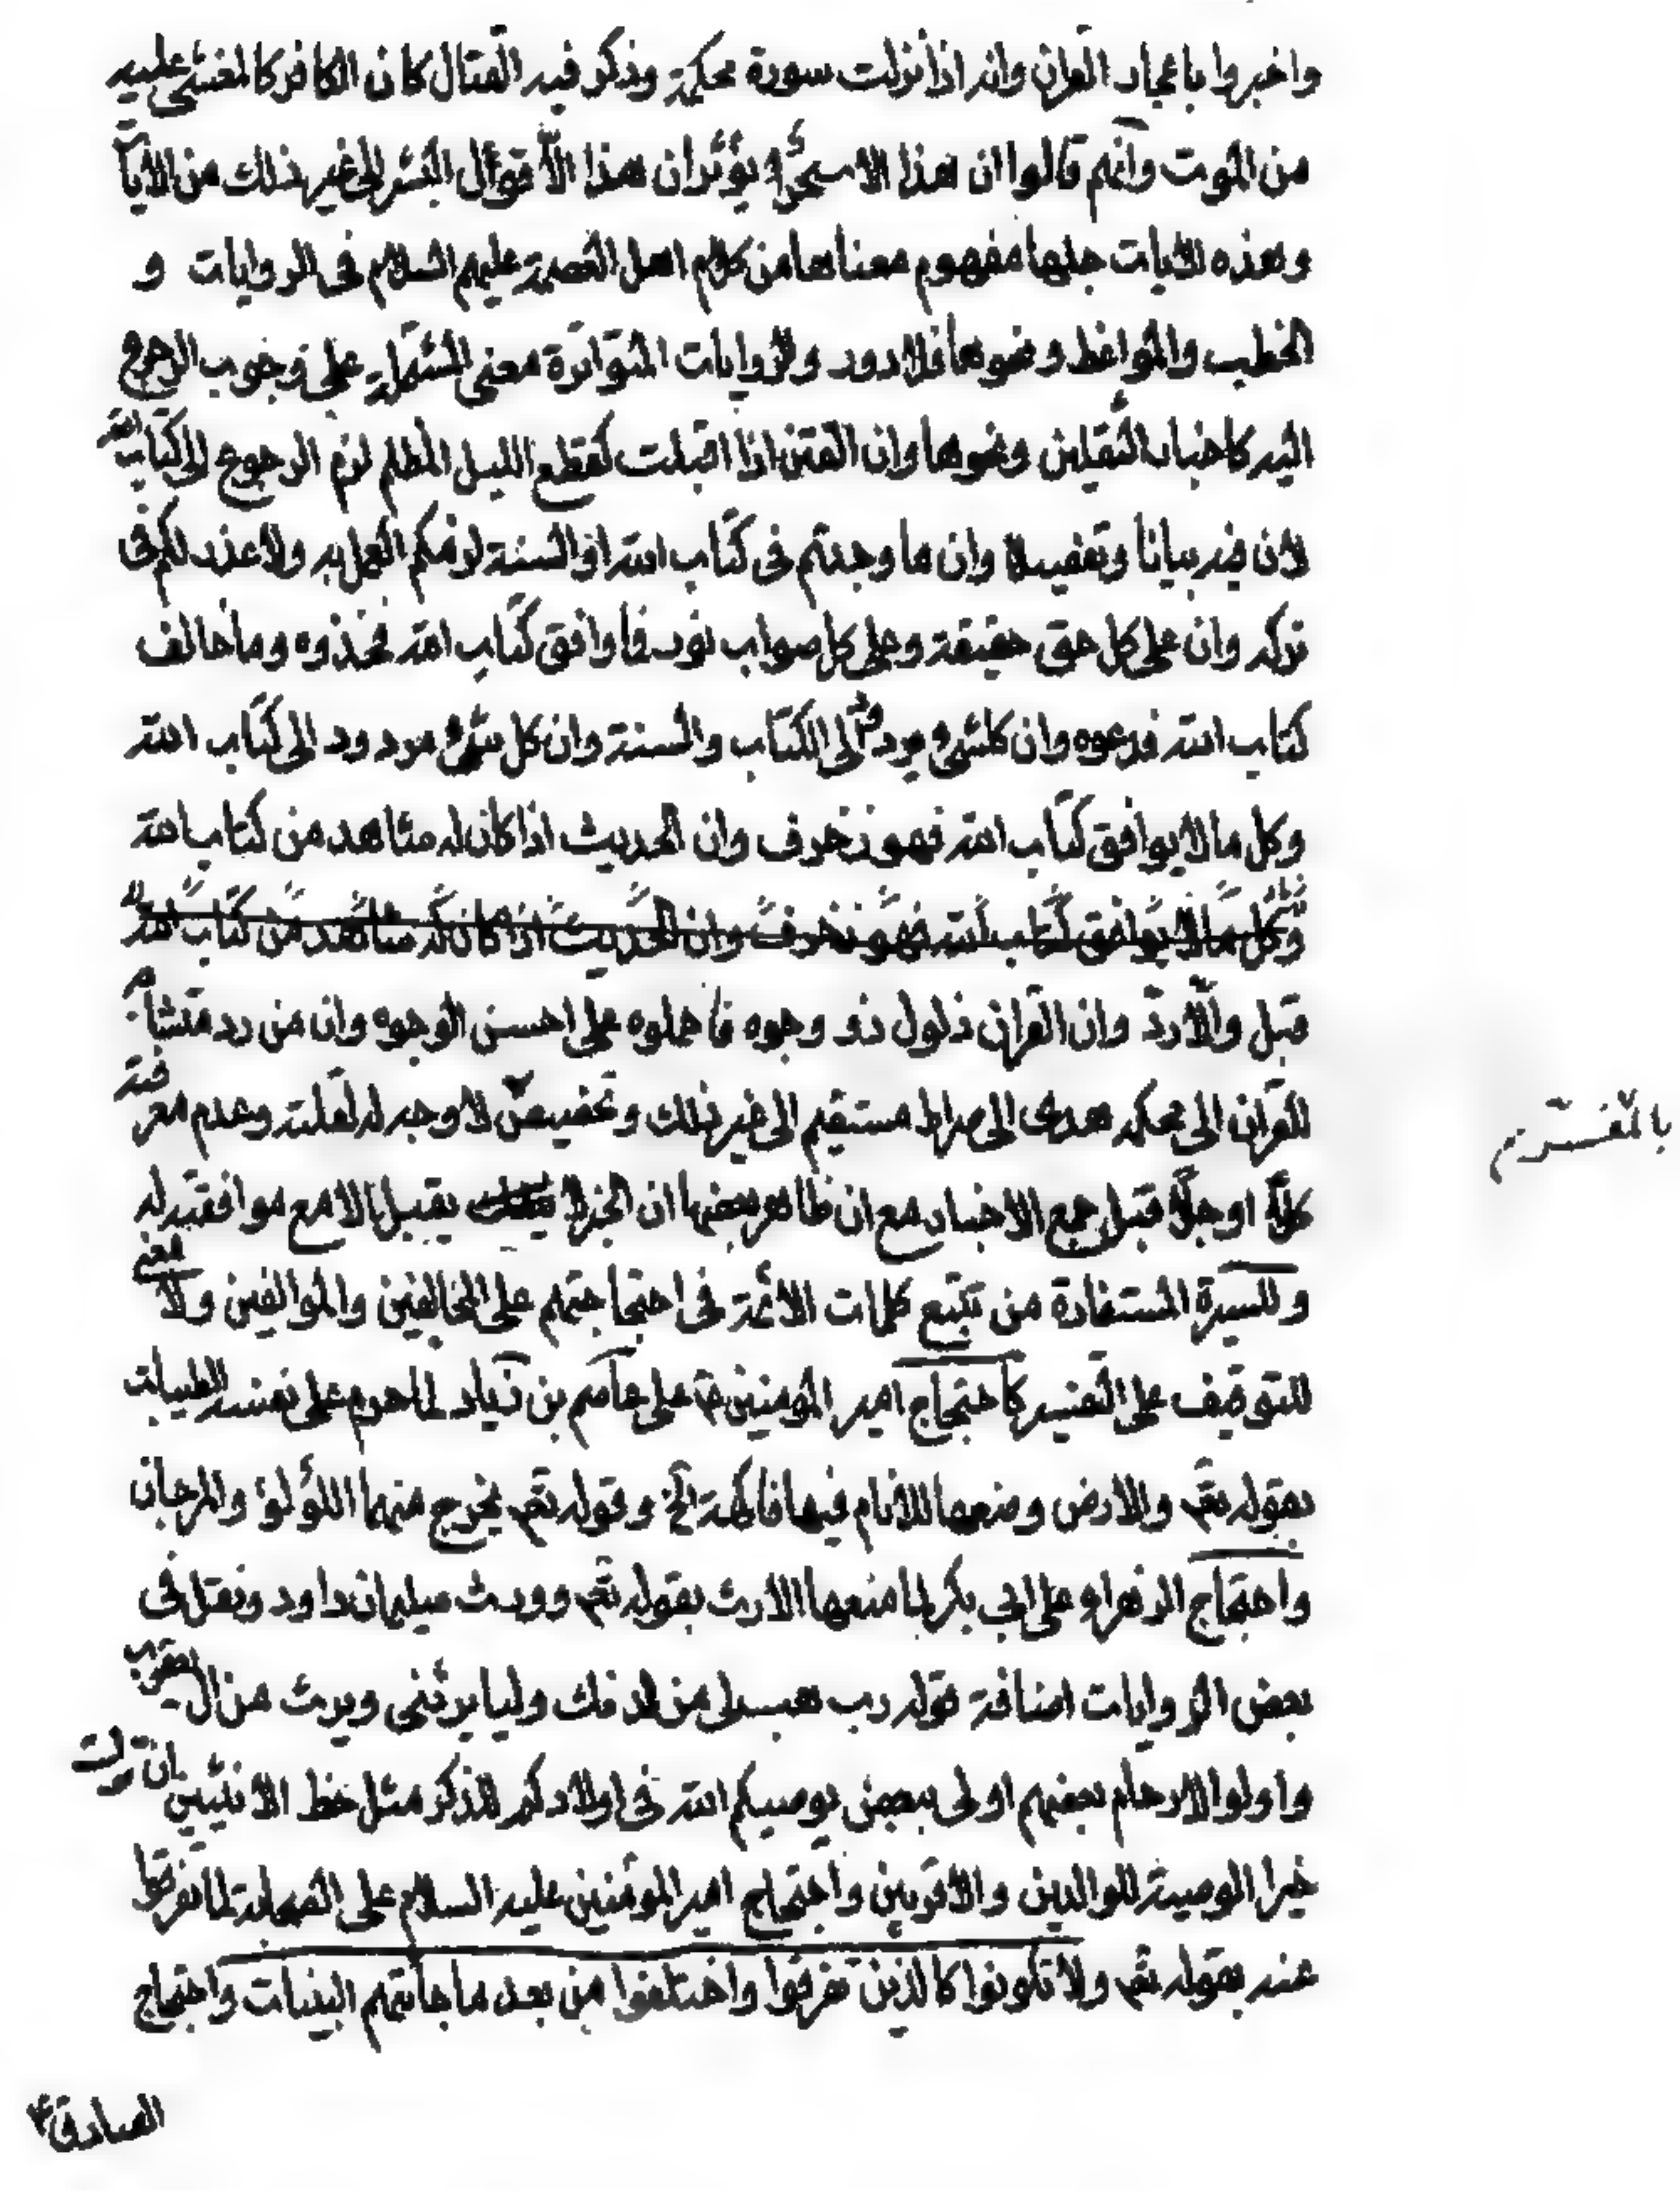 واخبروا باعجاد القران وانه اذا نزلت سورة محكمة وذكر فيه القتال كان الكافر كالمغشي عليه
من الموت وانهم قالوا ان هذا الا سحر يؤثر ان هذا الا قول البشر الى غير ذلك من الايات
وهذه الايات جلها مفهوم معناها من كلام اهل العصمة عليهم السلام في الروايات و
الخطب والمواعظ ونحوها فلا دور وللروايات المتواترة معنى المشتملة على وجوب الرجوع
اليه كاخبار الثقلين ونحوها وان الفتن اذا اقبلت كقطع الليل المظلم لزم الرجوع الى كتاب الله
لان فيه بيانا وتفصيلا وان ما وجدتم في كتاب الله او السنة لزمكم العمل به ولا عذر لكم في
تركه وان على كل حق حقيقة وعلى كل صواب نور فما وافق كتاب الله فخذوه وما خالف
كتاب الله فدعوه وان كلشيء مردود الى الكتاب والسنة وان كل شيء مردود الى كتاب الله
وكل ما لا يوافق كتاب الله فهو زخرف وان الحديث اذا كان له شاهد من كتاب الله
وكل ما لا يوافق كتاب الله فهو زخرف وان الحديث اذا كان له شاهد من كتاب الله
قبل والا رد وان القران ذلول ذو وجوه فاحملوه على احسن الوجوه وان من رد متشابه
القران الى محكمه هدى الى صراط مستقيم الى غير ذلك وتخصيص لا وجه له لقلته وعدم معرفته
كلا او جلا قبل جمع الاخبار مع ان ظاهر بعضها ان الخبر لا يقبل الا مع موافقته له
وللسيرة المستفادة من تتبع كلمات الائمة في احتجاجتهم على المخالفين والموالفين ولا معنى
للتوقيف على التفسير كاحتجاج امير المؤمنين ع على عاصم بن زياد لما حرم على نفسه الطيبات
بقوله تعم والارض وضعها للانام فيها فاكهة الخ وقوله تعم يخرج منهما اللؤلؤ والمرجان
واحتجاج الزهراء على ابي بكر لما منعها الارث بقوله تعم وورث سليمان داود ونقل في
بعض الروايات اضافة قوله رب هب لي من لدنك وليا يرثني ويرث من ال يعقوب
واولوا الارحام بعضهم اولى ببعض يوصيكم الله في اولادكم للذكر مثل حظ الانثيين ان ترك
خيرا الوصية للوالدين والاقربين واحتجاج امير المؤمنين عليه السلام على الصحابة لما تفرقوا
عنه بقوله تعم ولا تكونوا كالذين تفرقوا واختلفوا من بعد ما جائتهم البينات واحتجاج
الصادق ع